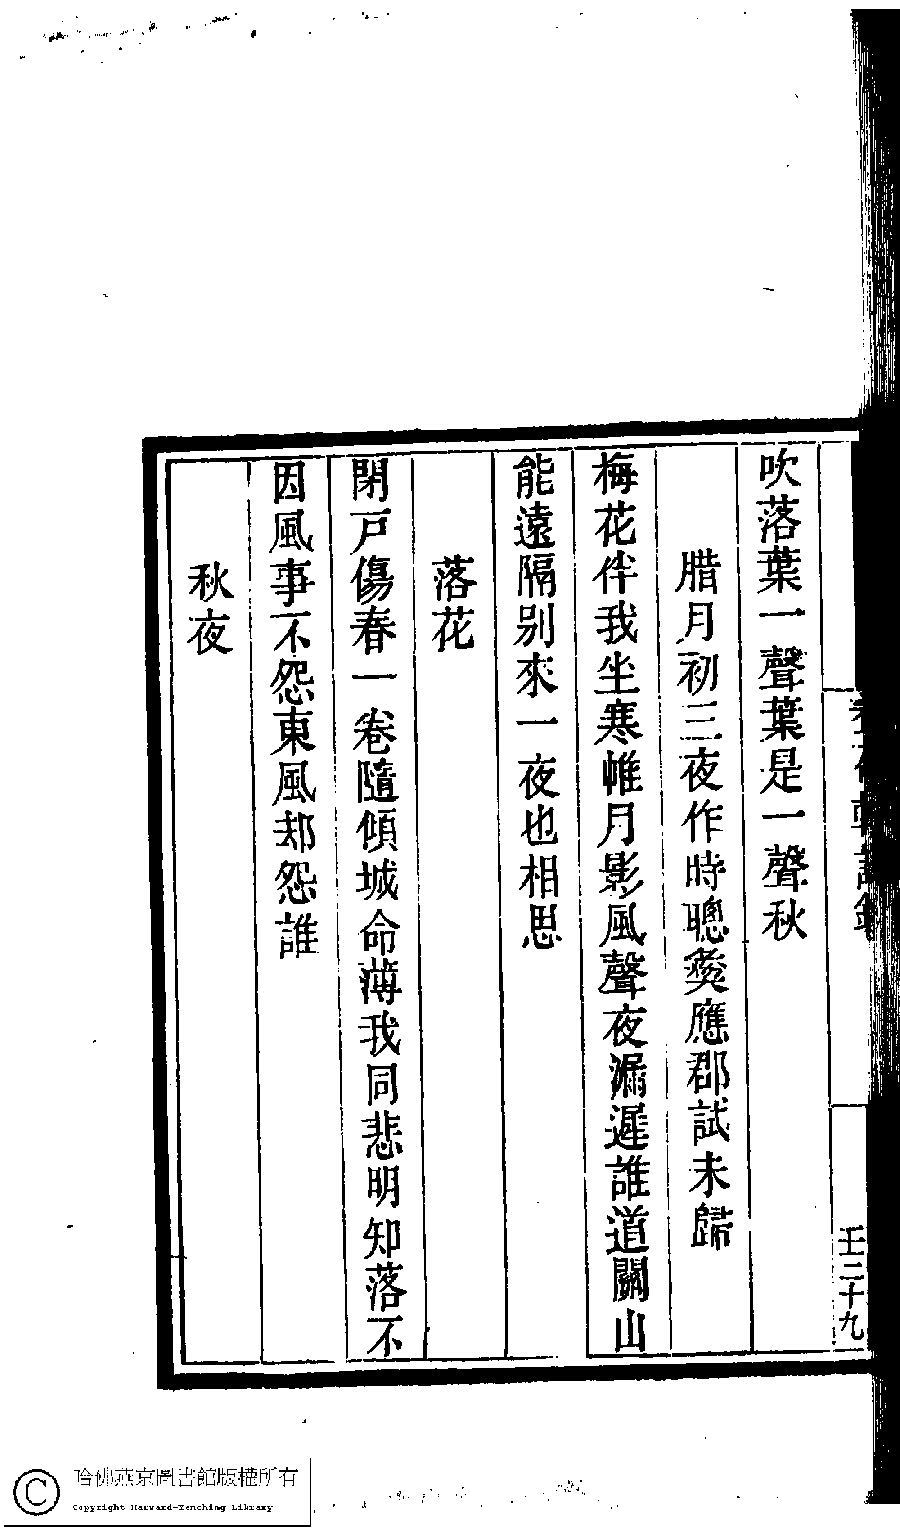 吹落葉一聲葉是一聲秋
腊月初三夜作時聰燮應郡試未歸
梅花伴我坐寒帷月影風聲夜漏遲誰道關山
能遠隔别來一夜也相思
落花
閉戸傷春一卷隨傾城命薄我同悲明知落不
因風事不怨東風却怨誰
秋夜
壬二十九
哈佛燕京圖書館版權所有
Copyright Harvard-Yenching Library